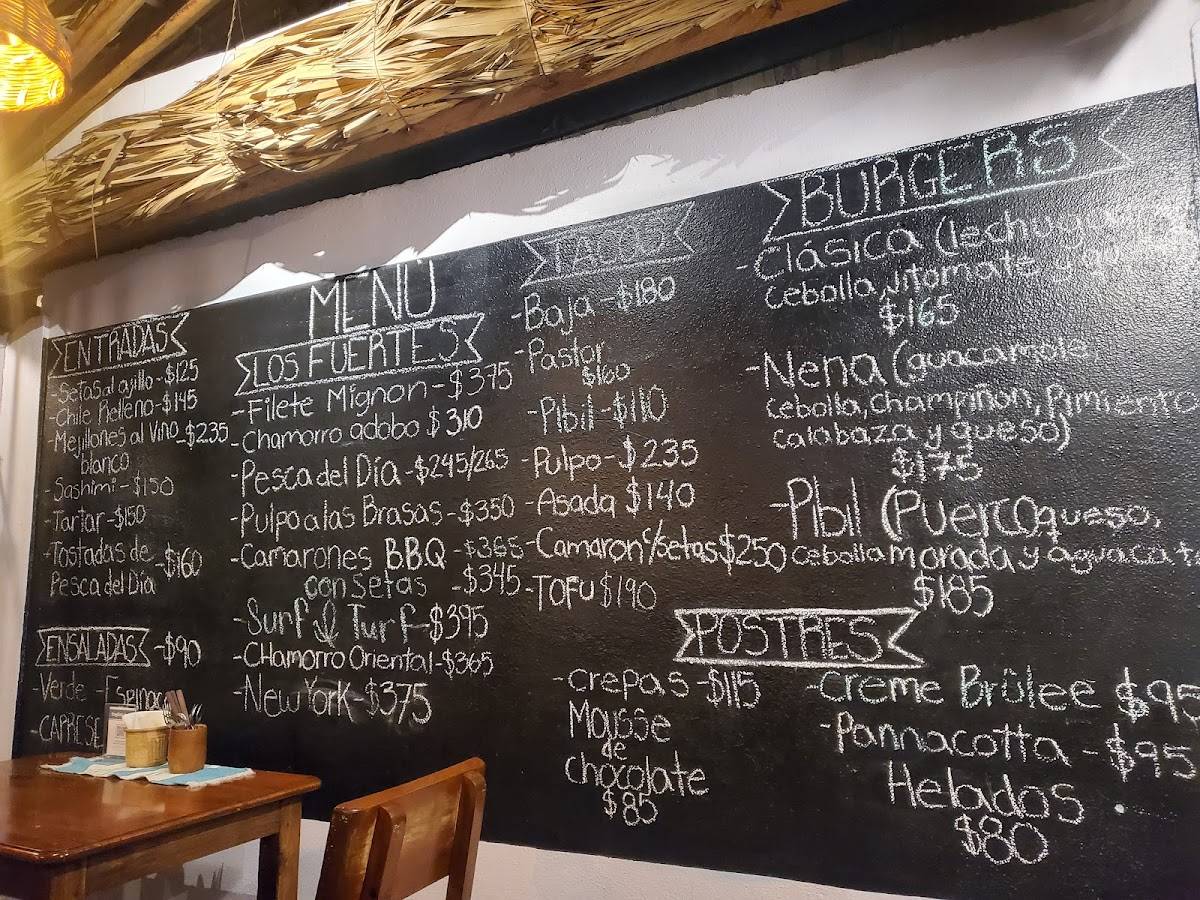 MENÚ
ENTRADAS
-Setas al ajillo-$125
-Chile Relleno-$145
-Mejillones al Vino-$235
blanco
-Sashimi-$150
-Tartar-$150
-Tostadas de -$160
Pesca del Día
ENSALADAS -$90
-Verde -Espinaca
-CAPRESE
LOS FUERTES
-Filete Mignon-$375
-Chamorro adobo $310
-Pesca del Día-$245/265
-Pulpo a las Brasas-$350
-Camarones B.B.Q -$365
con Setas -$345
-Surf & Turf-$395
-CHamorro Oriental-$365
-New York-$375
TACOS
-Baja-$180
-Pastor
$160
-Pibil-$110
-Pulpo-$235
-Asada $140
-Camaron c/setas $250
-TOFU $190
BURGERS
-Clásica (lechuga
cebolla, jitomate
$165
-Nena (guacamole,
cebolla, champiñon, Pimiento
calabaza y queso)
$175
-PIbil (Puerco, queso,
cebolla morada y aguacate
$185
POSTRES
-crepas-$115
Mousse
de
chocolate
$85
-creme Brûlee $95
-Pannacotta -$95
Helados
$80